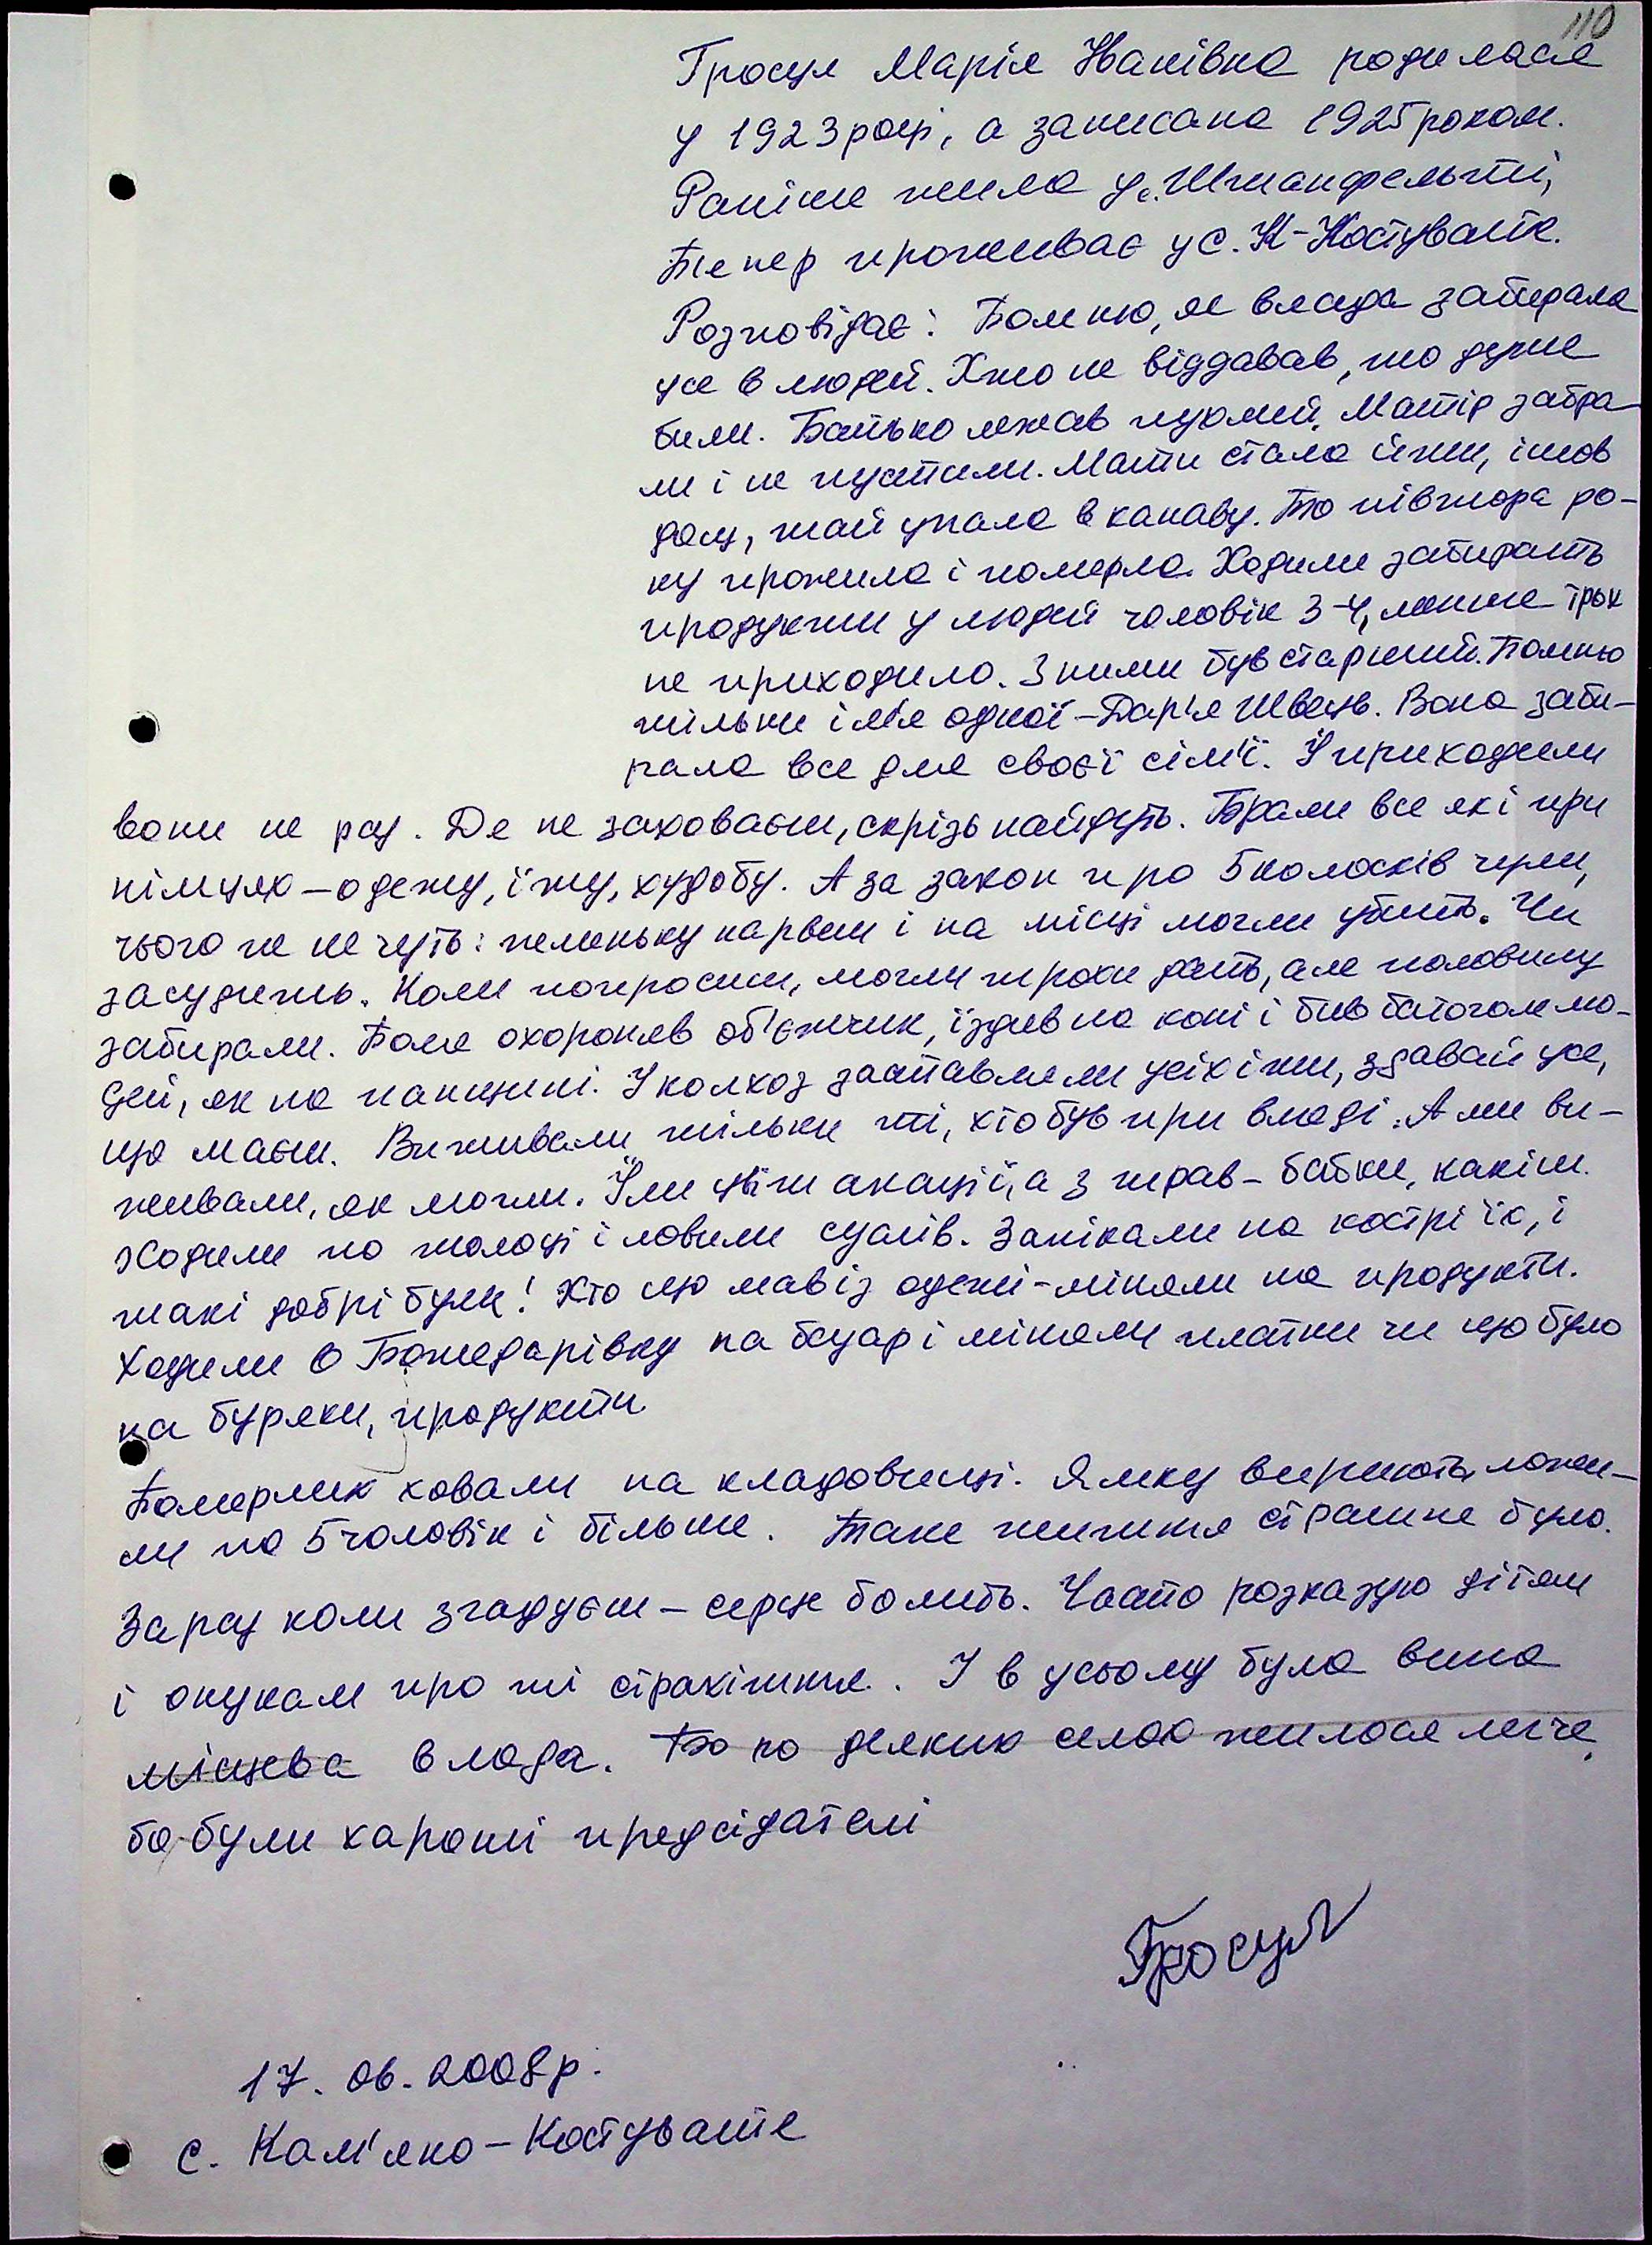 110
Гросул Марія Іванівна родилася
у 1923 році, а записана 1925 роком.
Раніше жила у с. Штманфельті,
Тепер проживає у с. К-Костувате.
Розповідає: Помню, як влада забирала
усе в людей. Хто не віддавав, то дуже
били. Батько лежав пухлий. Матір забра-
ли і не пустили. Мати стала йти, ішов
дощ, та й упала в канаву. То півтора ро-
ку прожила і померла. Ходили забирать
продукти у людей чоловік 3-4, менше трьох
не приходило. З ними був старший. Помню
тільки ім'я одної - Дар'я Швець. Вона заби-
рала все для своєї сім'ї. І приходили
вони не раз. Де не заховаєш, скрізь найдуть. Брали все як і при
німцях - одежу, їжу, худобу. А за закон про 5 колосків чули,
чього же не чуть: жменьку нарвеш і на місці могли убить. Чи
засудить. Коли попросиш, могли трохи дать, але половину
забирали. Поля охороняв об'єжчик, їздив на коні і бив батогом лю-
дей, як на панщині. У колхоз заставляли усіх іти, здавай усе,
що маєш. Виживали тільки ті, хто був при владі. А ми ви-
живали, як могли. Їли цвіт акації, а з трав - бабки, каким.
Ходили по толоці і ловили суслів. Запікали на кострі їх, і
такі добрі були! Хто що мав із одежі - міняли на продукти.
Ходили в Божедарівку на базар і міняли платки чи що було
на буряки, продукти.
Померлих ховали на кладовищі. Ямку вириють, ложи-
ли по 5 чоловік і більше. Таке життя страшне було.
Зараз коли згадуєш - серце болить. Часто розказую дітям
і онукам про ті страхіття. І в усьому була вина
місцева влада. Бо по деяких селах жилося легче,
бо були хароші предсідателі
Гросул
17.06.2008 р.
с. Кам'яно-Костувате